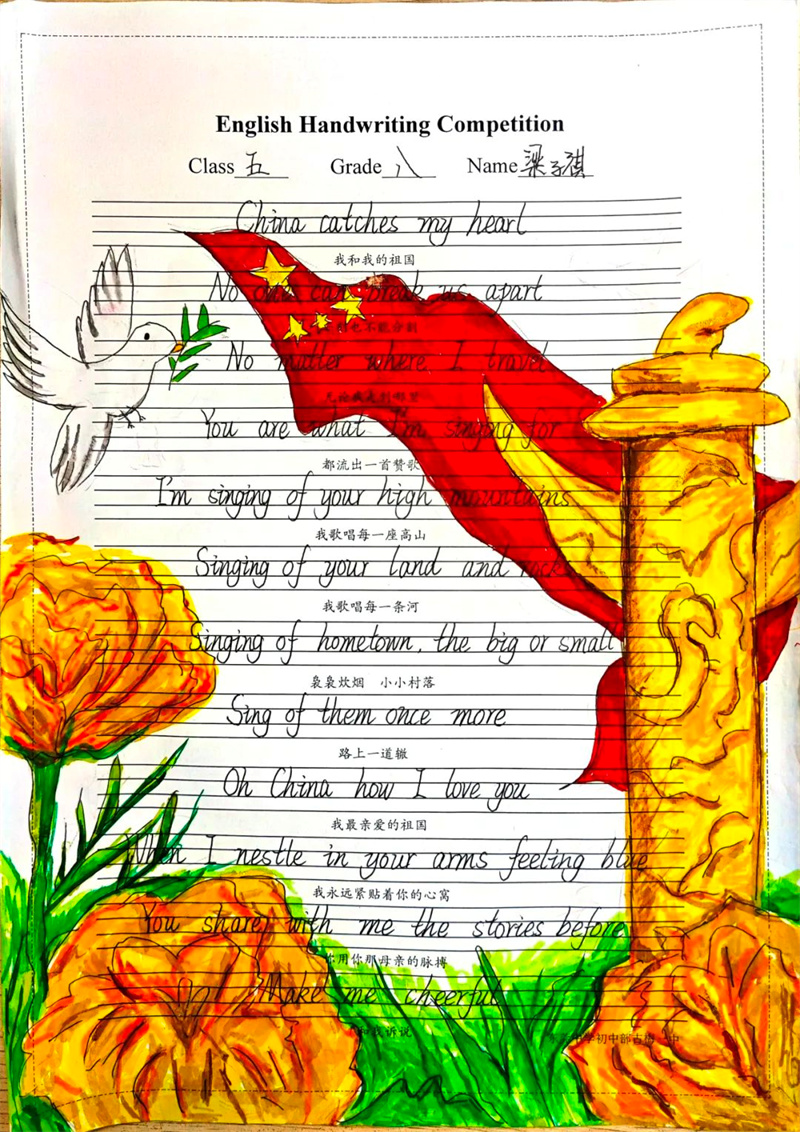 English Handwriting Competition
Class 五 Grade 八 Name 梁子祺
China catches my heart
我和我的祖国
No one can break us apart
刻也不能分割
No matter where I travel
无论我走到哪里
You are what I'm singing for
都流出一首赞歌
I'm singing of your high mountains
我歌唱每一座高山
Singing of your land and rocks
我歌唱每一条河
Singing of hometown, the big or small
袅袅炊烟 小小村落
Sing of them once more
路上一道辙
Oh China how I love you
我最亲爱的祖国
When I nestle in your arms feeling blue
我永远紧贴着你的心窝
You share with me the stories before
你用你那母亲的脉搏
Make me cheerful
和我诉说
中学初中部